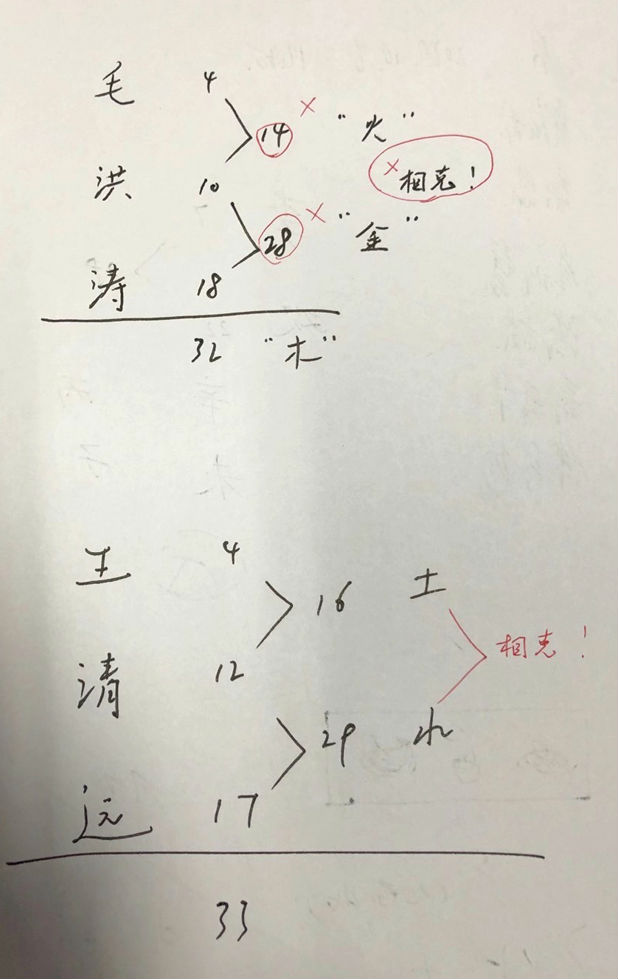 毛 4
14 × "火"
洪 10 × 相克！
28 × "金"
涛 18
32 "木"
王 4
16 土
相克！
清 12
29 水
远 17
33